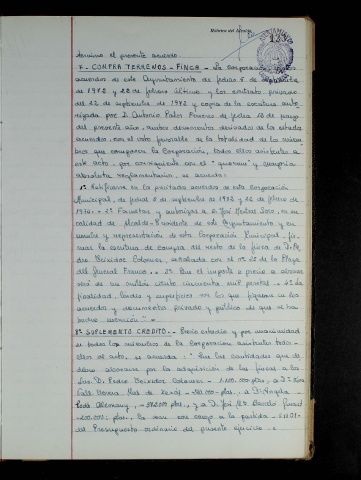 133
termino el presente acuerdo.
7.- COMPRA TERRENOS - FINCA.- La Corporación
acuerdos de este Ayuntamiento de fechas 5 de septiembre
de 1972 y 22 de febrero último y los contratos privados
del 22 de septiembre de 1972 y copia de la escritura auto
rizada por D. Antonio Pales de fecha 18 de mayo
del presente año, ambos documentos derivados de los citados
acuerdos, con el voto favorable de la totalidad de los miem
bros que componen la Corporación, todos ellos asistentes a
este acto, por consiguiente con el "quorum" y mayoría
absoluta reglamentarios, se acuerda:
1º Ratificarse en los precitados acuerdos de esta Corporación
Municipal, de fecha 5 de septiembre de 1972 y 22 de febrero de
- 2º Facultar y autorizar a D. José en su
calidad de Alcalde-Presidente de este Ayuntamiento y en
nombre y representación de esta Corporación Municipal, fir
mar la escritura de compra del resto de la finca de D. Pe
dro Colomer, señalada con el nº 22 de la Plaza
del General Franco.- 3º Que el importe o precio a abonar
será de un millón ciento cincuenta mil pesetas.- 4º La
finalidad, lindes y superficie son los que figuran en los
acuerdos y documentos privado y público de que se ha
hecho mención".-
8º SUPLEMENTO CREDITO.- Previo estudio y por unanimidad
de todos los miembros de la Corporación asistentes todos
ellos al acto, se acuerda: "Que las cantidades que se
deben abonar por la adquisición de las fincas a los
Sres. D. Pedro Colomer - 1.100.000 ptas., a Dª Rosa
ptas., a Dª Angela
ptas., y a D. José Mª Barceló
ptas., lo sean con cargo a la partida
del Presupuesto ordinario del presente ejercicio.